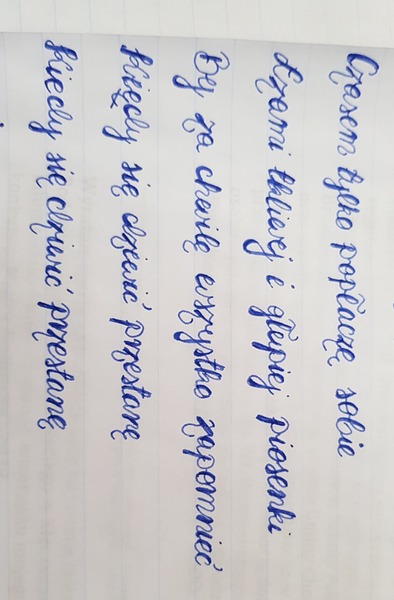 Czasem tylko popłaczę sobie
Łzami tkliwej i głupiej piosenki
By za chwilę wszystko zapomnieć
Kiedy się dziwić przestanę
Kiedy się dziwić przestanę